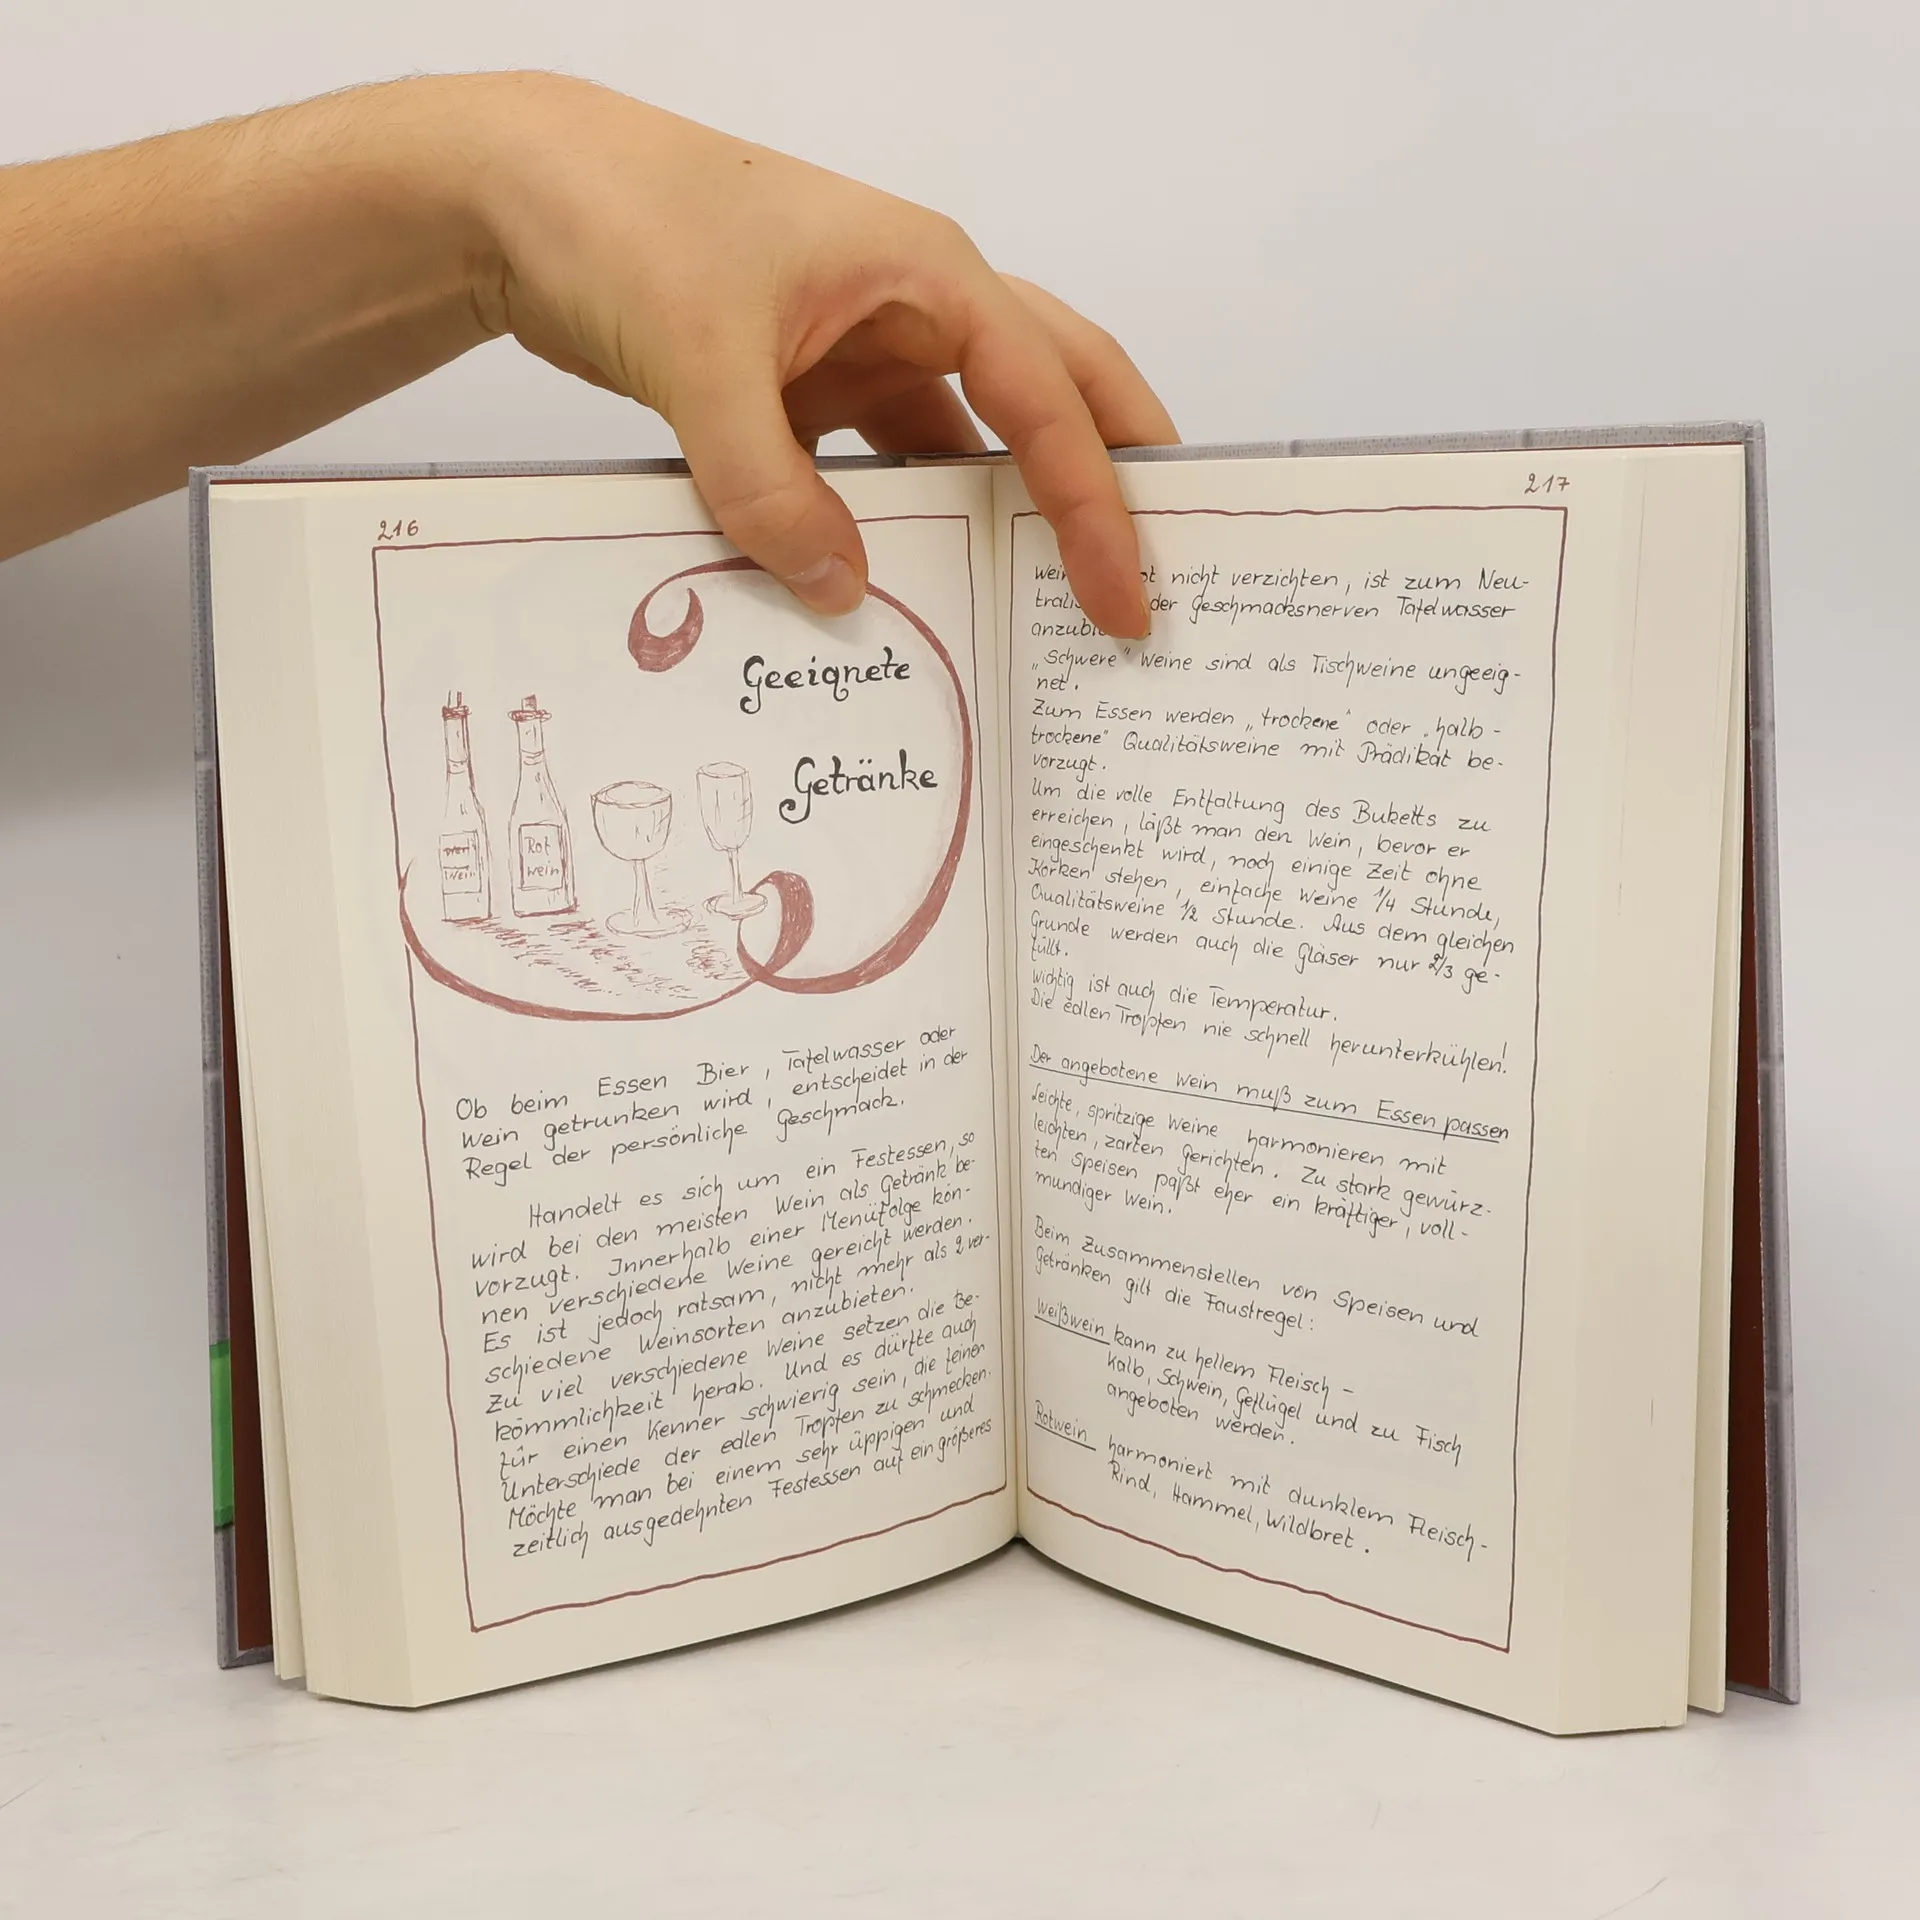 216
Geeignete
Getränke
Wein
Rot
Wein
Ob beim Essen Bier, Tafelwasser oder
Wein getrunken wird, entscheidet in der
Regel der persönliche Geschmack.
Handelt es sich um ein Festessen, so
wird bei den meisten Wein als Getränk be-
vorzugt. Innerhalb einer Menüfolge kön-
nen verschiedene Weine gereicht werden.
Es ist jedoch ratsam, nicht mehr als 2 ver-
schiedene Weinsorten anzubieten.
Zu viel verschiedene Weine setzen die Be-
kömmlichkeit herab. Und es dürfte auch
für einen Kenner schwierig sein, die feinen
Unterschiede der edlen Tropfen zu schmecken.
Möchte man bei einem sehr üppigen und
zeitlich ausgedehnten Festessen auf ein größeres
217
nicht verzichten, ist zum Neu-
der Geschmacksnerven Tafelwasser
„Schwere" Weine sind als Tischweine ungeeig-
net.
Zum Essen werden „trockene" oder „halb-
trockene" Qualitätsweine mit Prädikat be-
vorzugt.
Um die volle Entfaltung des Buketts zu
erreichen, läßt man den Wein, bevor er
eingeschenkt wird, noch einige Zeit ohne
Korken stehen, einfache Weine 1/4 Stunde,
Qualitätsweine 1/2 Stunde. Aus dem gleichen
Grunde werden auch die Gläser nur 2/3 ge-
füllt.
Wichtig ist auch die Temperatur.
Die edlen Tropfen nie schnell herunterkühlen!
Der angebotene Wein muß zum Essen passen
Leichte, spritzige Weine harmonieren mit
leichten, zarten Gerichten. Zu stark gewürz-
ten Speisen paßt eher ein kräftiger, voll-
mundiger Wein.
Beim Zusammenstellen von Speisen und
Getränken gilt die Faustregel:
Weißwein kann zu hellem Fleisch -
Kalb, Schwein, Geflügel und zu Fisch
angeboten werden.
Rotwein harmoniert mit dunklem Fleisch -
Rind, Hammel, Wildbret.